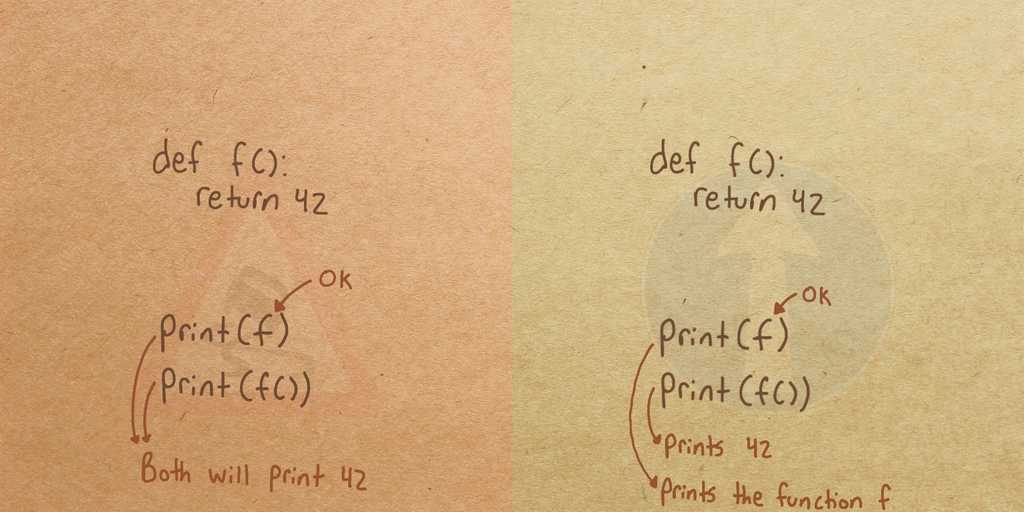 def f():
return 42
OK
print(f)
print(f())
Both will print 42
def f():
return 42
OK
print(f)
print(f())
prints 42
prints the function f